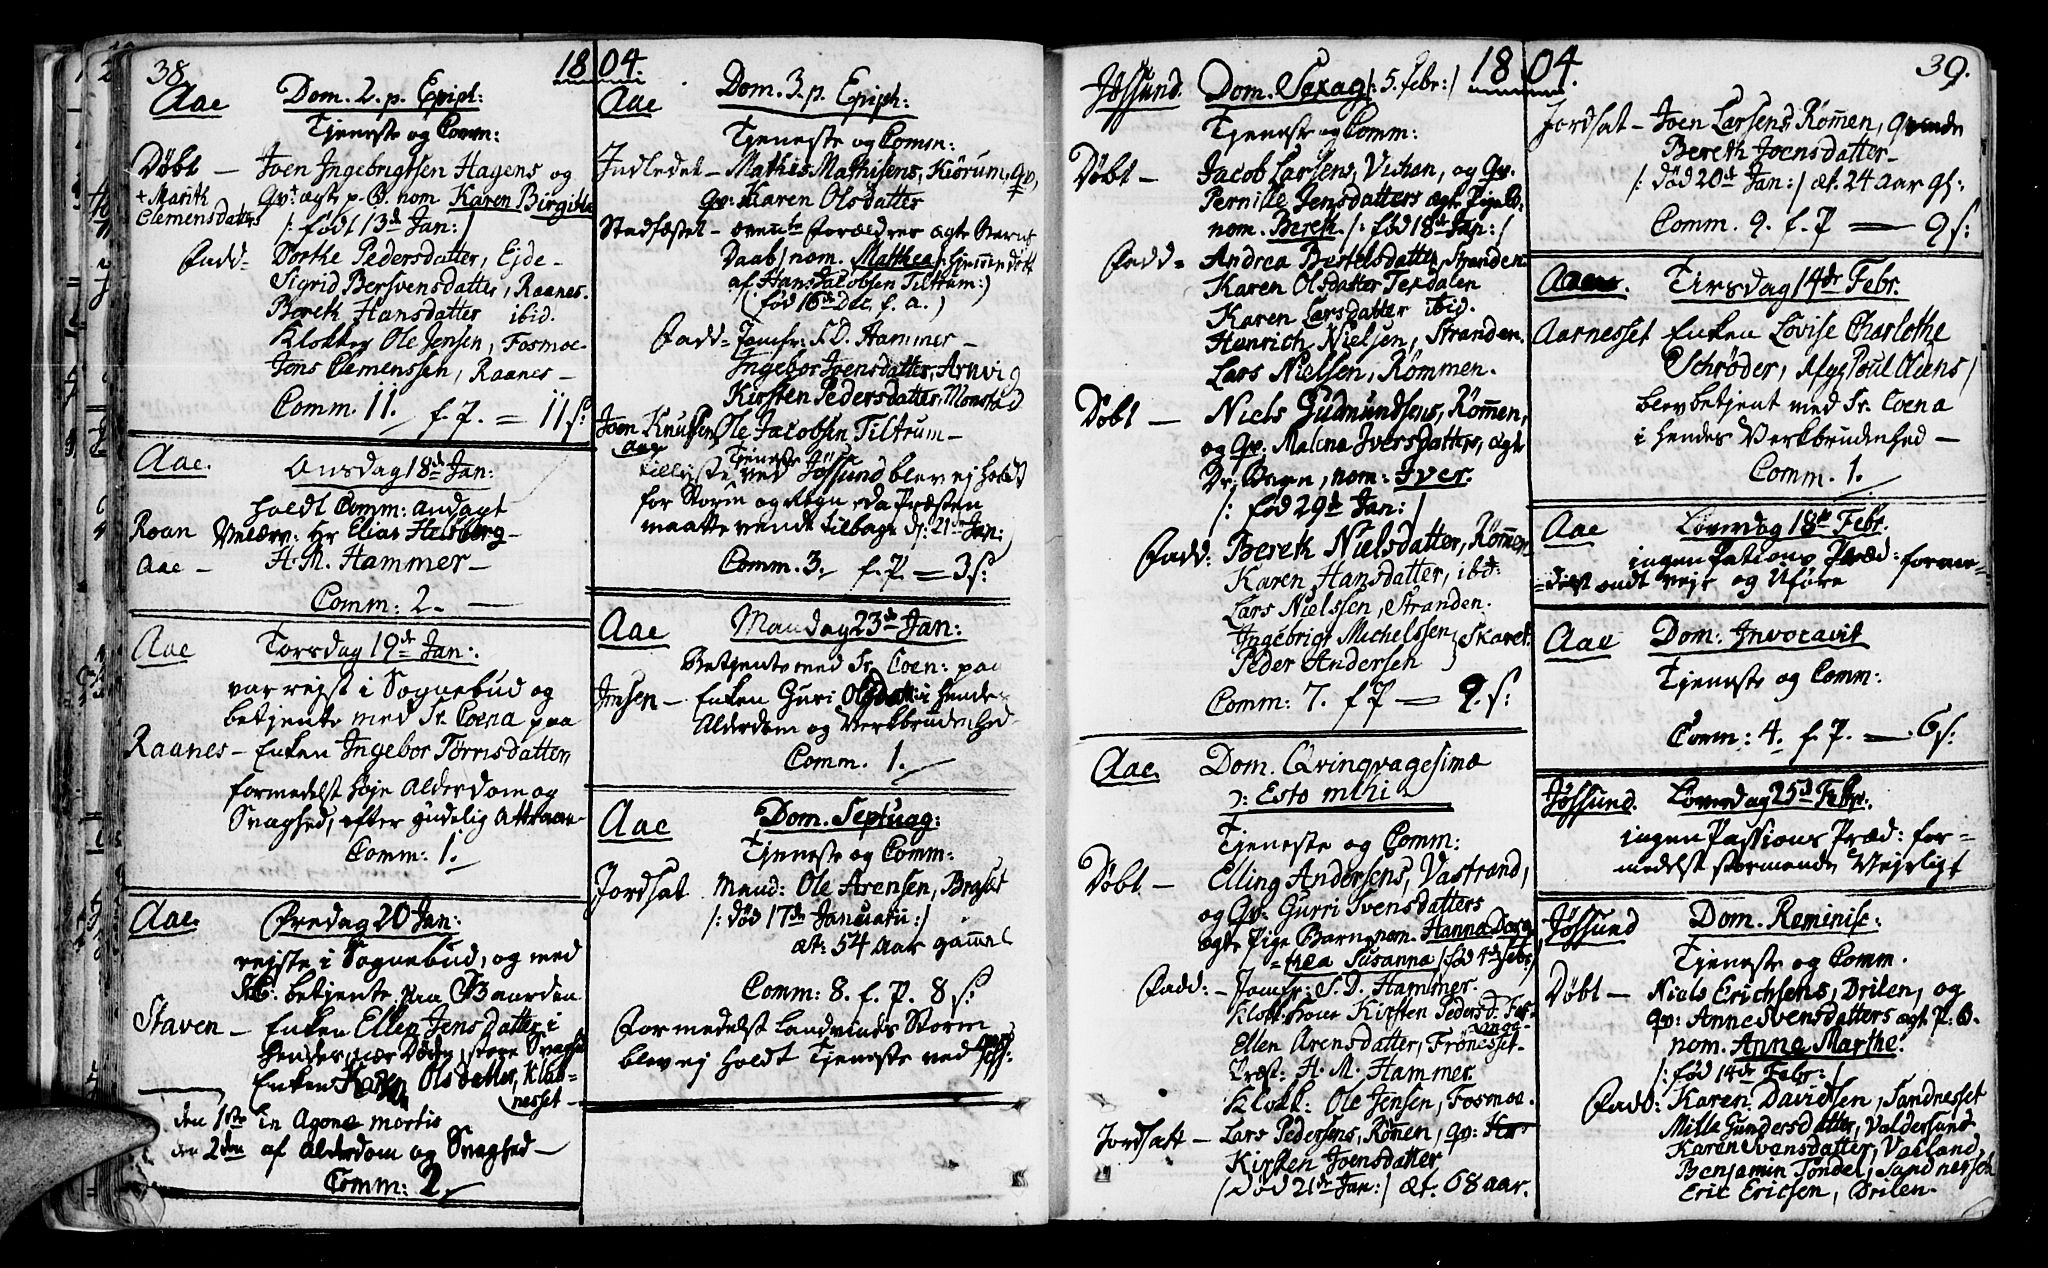 38.
1804.
Aae Dom. 2. p. Epiph:
Tjeneste og Comm:
Døbt — Joen Ingebrigtsen Hagens og
+ Marith
Clemensdatter
Qv: ægte p. B. nom Karen Birgitha
/: født 13de Jan: /
Fadd= Dorthe Pedersdatter, Eide –
Sigrid Bersvensdatter, Raanes.
Bereth Hansdatter ibid.
Klokker Ole Jensen, Fosmoe –
Jens Clemenssen, Raanes –
Comm. 11. f. P. = 11 s:
Aae. Onsdag 18de Jan:
holdt Comm: andagt
Roan Velærv: Hr Elias Heltberg –
Aae – H. M. Hammer –
Comm: 2. —
Aae Torsdag 19de Jan:
var reist i Sognebud og
betjente med Sr. Coena paa
Raanes – Enken Ingebor Tørrisdatter,
formedelst høje Alderdom og
Svaghed, efter gudelig Attraae –
Comm: 1.
Aae. Fredag 20 Jan:
rejste i Sognebud, og med
betjente paa Gaarden
Staven – Enken Ellen Jens Datter i
hendes nær Døden store Svaghed
Enken Karen Olsdatter, Klak-
nesset –
den 1ste in Agone mortis
den 2den af Alderdom og Svaghed –
Comm: 2.
Aae Dom. 3. p. Epiph:
Tjeneste og Comm:
Indledet – Mathis Mathisens, Kiørum, Qv,
qv: Karen Olsdatter
Stadfæstet – Forældres ægte Barns
Daab, nom. Matthea, hjemmedøbt
af Hans Jacobsen Tiltrum:)
( født 16de Dec. f. a. )
Fadd= Jomfr: S. D. Hammer –
Ingebor Joensdatter, Arnvig
Kirsten Pedersdatter, Monstad
Joen Knutsen, Ole Jacobsen Tiltrum –
Aae
Tjeneste
ved Jøssund blev ej holdt
for Storm og Regn, da Præsten
maatte vende tilbage d: 21de Jan:
Comm. 3. f. P. = 3 s:
Aae Mandag 23de Jan:
Betjente med Sr. Coen: paa
Jensen – Enken Guri Olsdatter i hendes
Alderdom og Verkbrudenhed
Comm. 1.
Aae Dom. Septuag:
Tjeneste og Comm:
Jordsat Mand: Ole Arensen, Braset
/: død 17de Januarii :/
æt: 54 aar gammel
Comm: 8. f. P. 8 s:
Formedelst Landvinds Storm
blev ej holdt Tjeneste ved
39.
1804.
Jøssund. Dom. Sexag /: 5. Febr: /
Tjeneste og Comm:
Døbt – Jacob Larsens, Vishan, og Qv.
Pernille Jensdatters ægte Pige B:
nom. Bereth. /: født 18de Jan: /
Fadd= Andrea Bertelsdatter, Stranden
Karen Olsdatter Terdalen
Karen Larsdatter ibid.
Henrich Nielsen, Stranden.
Lars Nielsen, Rømmen.
Døbt – Niels Gudmundsens, Rømen,
og Qv: Malena Iversdatters, ægte
Dr. Barn, nom: Iver.
/: født 29de Jan: /
Fadd: Bereth Nielsdatter, Rømmen
Karen Hansdatter, ibd:
Lars Nielssen, Stranden.
Ingebrigt Michelssen, Skaret.
Peder Andersen
Comm: 7. f P = 9. s:
Aae. Dom. Qvinqvagesimæ
ɔ: Esto mihi
Tjeneste og Comm:
Døbt – Elling Andersens, Vastrand,
og Qv: Gurri Svensdatters
ægte Pige Barn, nom. Hanna Doro
= thea Susanna /: født 4de Febr: /
Fadd: – Jomfr: S. D. Hammer.
Klokk: Kone Kirsten Peders D. Fos-
moe –
Ellen Arensdatter, Frønesset –
Præst: H. M. Hammer.
Klokk: Ole Jensen, Fosmoe.
Jordsatt – Lars Pedersens, Rømen, qv:
Kirsten Joensdatter
/: død 21de Jan: / æt. 68 aar.
Jordsat – Joen Larsens Rømen, Qvinde
Bereth Joensdatter –
/: død 20de Jan: / æt. 24 Aar gl:
Comm. 9. f. P — 9 s:
Aaen. Tirsdag 14de Febr.
Aarnesset Enken Lovise Charlothe
Schrøder, Afg. Poul Olsens,
blev betjent med Sr. Coena
i hendes Verkbrudenhed –
Comm. 1.
Aae Løverdag 18de Febr.
ingen Passions Præd: forme-
= delst ondt vejr og Uføre
Aae Dom: Invocavit
Tjeneste og Comm:
Comm: 4. f. P. — 6 s:
Jøssund. Løverdag 25de Febr.
ingen Passions Præd: for=
medelst stormende Vejrligt
Jøssund Dom. Reminisc:
Tjeneste og Comm.
Døbt – Niels Erichsens, Drilen, og
qv: Anne Svensdatters ægt P: B.
nom. Anna Marthe.
/: født 14de Febr: /
Fadd: Karen Davidsen, Sandnesset
Milla Gundersdatter, Valdersund
Karen Svensdatter, Valland,
Benjamin Tøndel, Sandnesset
Eric Ericsen, Drilen.